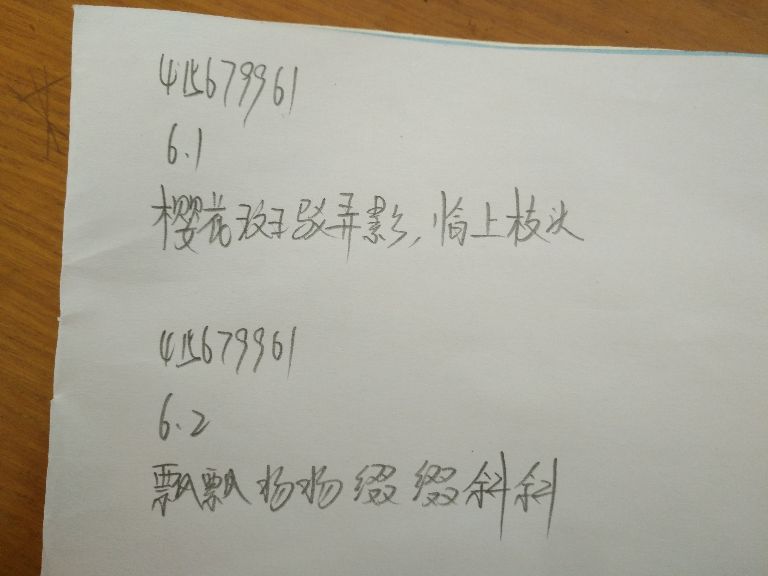 415679961
6.1
樱花斑驳弄影,恰上枝头
415679961
6.2
飘飘扬扬缀缀斜斜